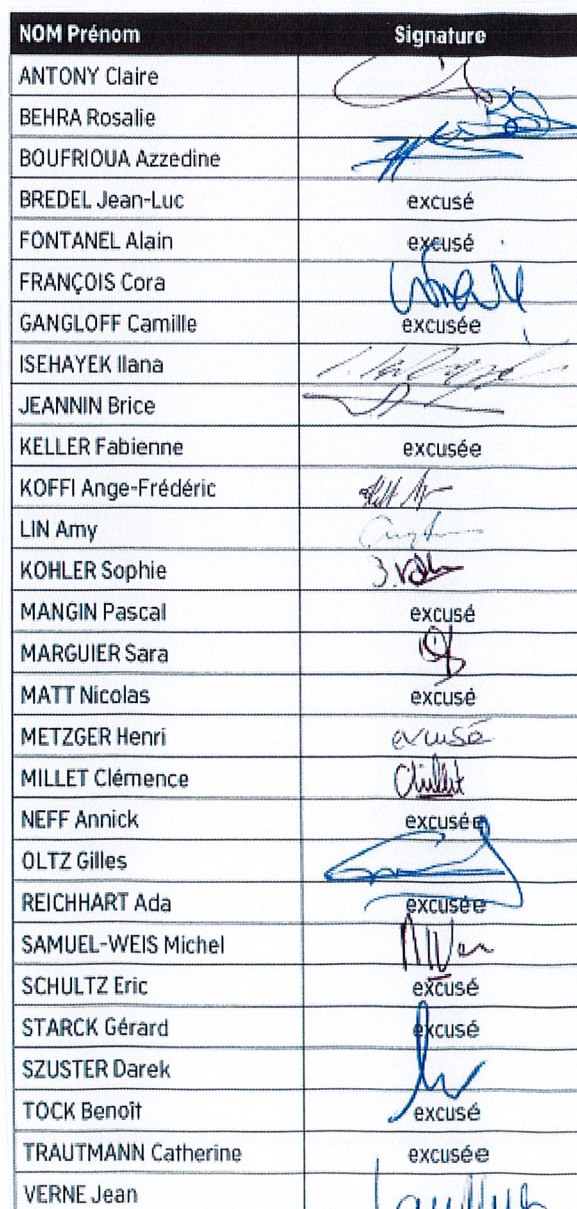 NOM Prénom Signature
ANTONY Claire
BEHRA Rosalie
BOUFRIOUA Azzedine
BREDEL Jean-Luc excusé
FONTANEL Alain excusé
FRANÇOIS Cora
GANGLOFF Camille excusée
ISEHAYEK Ilana
JEANNIN Brice
KELLER Fabienne excusée
KOFFI Ange-Frédéric
LIN Amy
KOHLER Sophie
MANGIN Pascal excusé
MARGUIER Sara
MATT Nicolas excusé
METZGER Henri excusé
MILLET Clémence
NEFF Annick excusée
OLTZ Gilles
REICHHART Ada excusée
SAMUEL-WEIS Michel
SCHULTZ Eric excusé
STARCK Gérard excusé
SZUSTER Darek
TOCK Benoît excusé
TRAUTMANN Catherine excusée
VERNE Jean